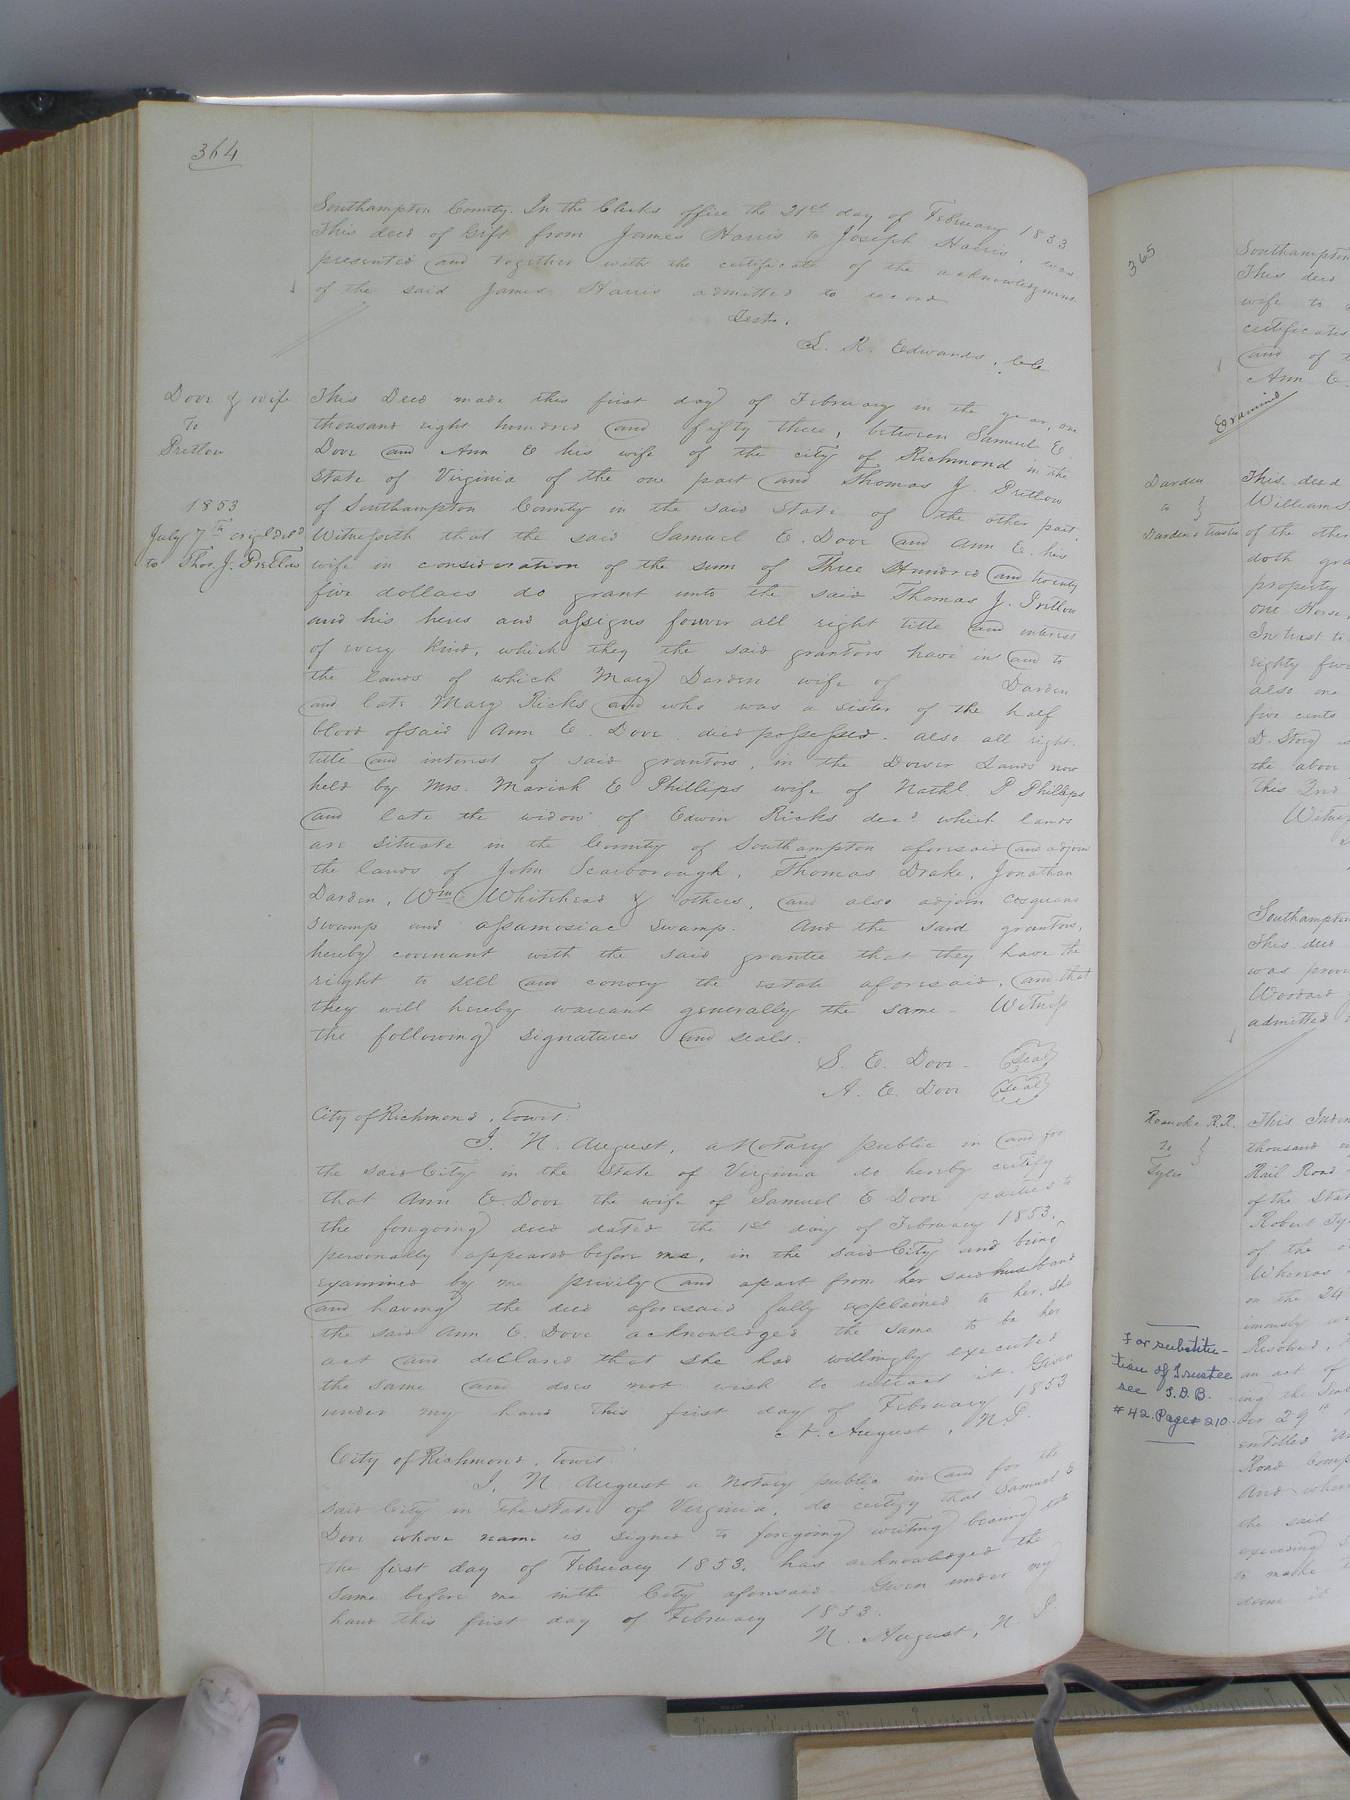 364
Southampton County. In the Clerks office the 21st day of February 1853
This deed of Gift from James Harris to Joseph Harris, was
presented and together with the certificate of the acknowledgment
of the said James Harris admitted to record
Teste,
L. R. Edwards, Clk
Dove & wife
To
Pretlow
1853
July 7th origl deld
to Thos. J. Pretlow
This Deed made this first day of February in the year, one
thousand eight hundred and fifty three, between Samuel E.
Dove and Ann E his wife of the city of Richmond in the
State of Virginia of the one part and Thomas J. Pretlow
of Southampton County in the said State of the other part,
Witnesseth that the said Samuel E. Dove and Ann E. his
wife in consideration of the sum of Three Hundred and twenty
five dollars do grant unto the said Thomas J. Pretlow
and his heirs and assigns forever all right title and interest
of every kind, which they the said grantors have in and to
the lands of which Mary Darden wife of Darden
and late Mary Ricks and who was a sister of the half
blood of said Ann E. Dove died possessed. also all right
title and interest of said grantors, in the Dower Lands now
held by Mrs. Mariah E Phillips wife of Nathl. P Phillips
and late the widow of Edwin Ricks decd which lands
are situate in the County of Southampton aforesaid and adjoin
the lands of John Scarborough, Thomas Drake, Jonathan
Darden, Wm Whitehead & others, and also adjoin Cosquans
Swamp and assamosiac Swamp. And the said grantors,
hereby covenant with the said grantee that they have the
right to sell and convey the estate aforesaid, and that
they will hereby warrant generally the same - Witness
the following signatures and seals.
S. E. Dove Seal
A. E. Dove Seal
City of Richmond, Towit:
I, N. August, a Notary public in and for
the said City in the State of Virginia do hereby certify
that Ann E. Dove the wife of Samuel E Dove parties to
the foregoing deed dated the 1st day of February 1853.
personally appeared before me, in the said City and being
examined by me privily and apart from her said husband
and having the deed aforesaid fully explained to her, she
the said Ann E. Dove acknowledged the same to be her
act and declared that she had willingly executed
the same and does not wish to retract it. Given
under my hand this first day of February 1853
N. August, N. P.
City of Richmond, Towit:
I, N. August a Notary public in and for the
said City in the State of Virginia, do certify that Samuel E
Dove whose name is signed to foregoing writing bearing date
the first day of February 1853. has acknowledged the
same before me in the City aforesaid Given under my
hand this first day of February 1853.
N. August, N P
365
Southampton
This deed
wife to
certificate
and of t
Ann E.
Examined
Darden
to
Darden & Trustee
This deed
William S
of the othe
doth gra
property
one Horse,
In trust to
eighty five
also one
five cents
D. Story
the above
This 2nd
Witne
Southampton
This deed
was prov
Woodard
admitted
Roanoke R.R.
To
Tyler
This Inden
thousand
Rail Road
of the Stat
Robert Ty
of the
Whereas
on the 24
imously
Resolved,
an act of
ing the
29th
entitled
Road Comp
And when
the said
exceeding
to make
deem it
For substitu-
tion of Trustee
see T.D.B.
#42. Page# 210.